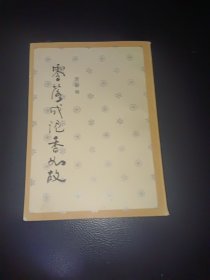 零落成泥香如故